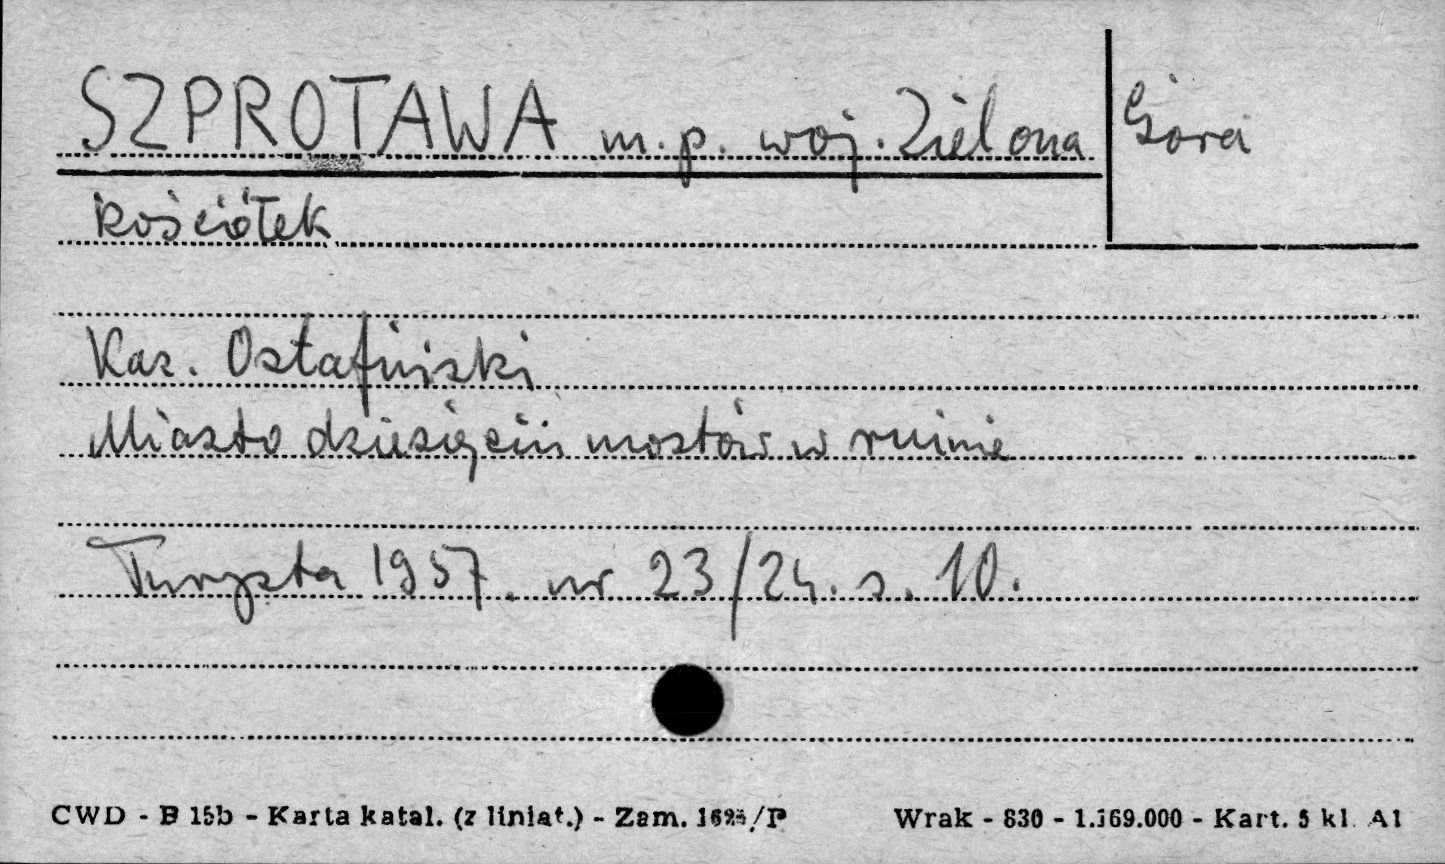 SZPROTAWA m.p. woj. Zielona Góra
kościółek
Kaz. Ostafiński
Miasto dziesięciu mostów w ruinie
Turysta 1957. nr 23/24. s. 10.
CWD - B 15b - Karta katal. (z liniat.) - Zam. /P Wrak - 830 - 1.169.000 - Kart. 5 kl. A1